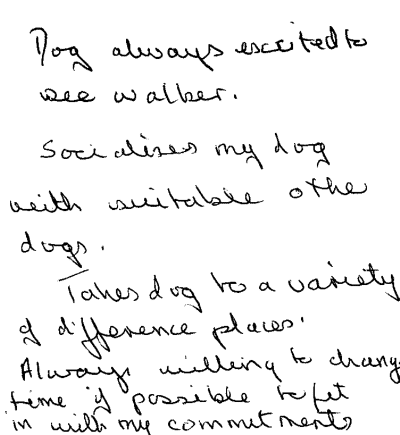 Dog always excited to
see walker.
Socialises my dog
with suitable othe
dogs.
Takes dog to a variety
of difference places.
Always willing to chang
time if possible to fit
in with my commitments